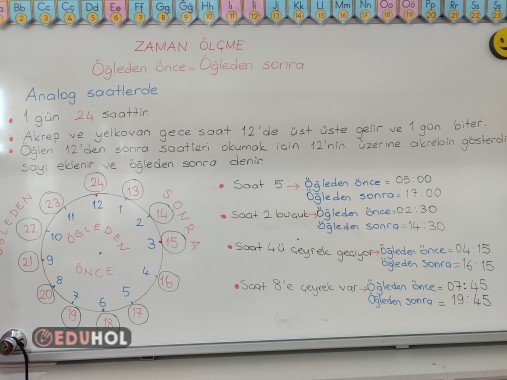 Bb Cc Çç Dd Ee Ff Gg Ğğ Hh Iı İi Jj Kk Ll Mm Nn Oo Öö Pp Rr Ss
2 3 4 5 6 7 8 9 10 11 12 13 14 15 16 17 18 19 20 21 22 23
ZAMAN ÖLÇME
Öğleden önce - Öğleden sonra
Analog saatlerde
• 1 gün 24 saattir.
• Akrep ve yelkovan gece saat 12'de üst üste gelir ve 1 gün biter.
• Öğlen 12'den sonra saatleri okumak için 12'nin üzerine akrebin gösterdi
sayı eklenir ve öğleden sonra denir.
• Saat 5 → Öğleden önce = 05:00
Öğleden sonra = 17:00
• Saat 2 buçuk → Öğleden önce = 02:30
Öğleden sonra = 14:30
• Saat 4'ü çeyrek geçiyor → Öğleden önce = 04:15
Öğleden sonra = 16:15
• Saat 8'e çeyrek var → Öğleden önce = 07:45
Öğleden sonra = 19:45
ÖĞLEDEN SONRA
24 13 14 15 16 17 18 19 20 21 22 23
12 1 2 3 4 5 6 7 8 9 10 11
ÖĞLEDEN
ÖNCE
EDUHOL